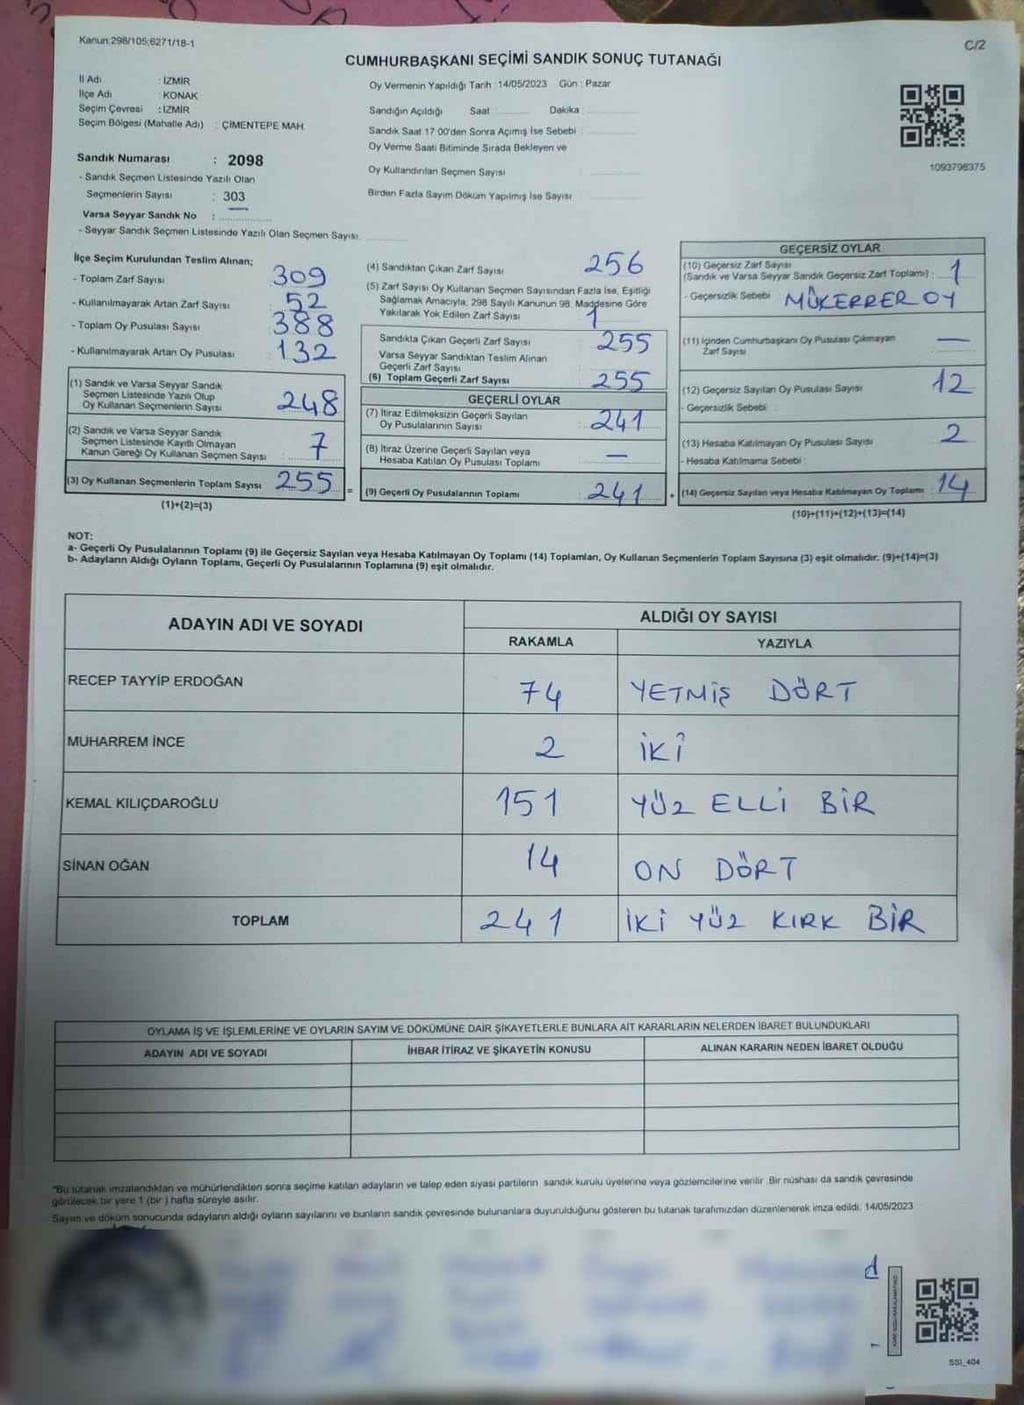 Kanun:298/105;6271/18-1
C/2
CUMHURBAŞKANI SEÇİMİ SANDIK SONUÇ TUTANAĞI
İl Adı : İZMİR
İlçe Adı : KONAK
Seçim Çevresi : İZMİR
Seçim Bölgesi (Mahalle Adı) : ÇİMENTEPE MAH.
Sandık Numarası : 2098
- Sandık Seçmen Listesinde Yazılı Olan
Seçmenlerin Sayısı : 303
Varsa Seyyar Sandık No :
- Seyyar Sandık Seçmen Listesinde Yazılı Olan Seçmen Sayısı
Oy Vermenin Yapıldığı Tarih : 14/05/2023 Gün : Pazar
Sandığın Açıldığı Saat Dakika
Sandık Saat 17:00'den Sonra Açımış İse Sebebi
Oy Verme Saati Bitiminde Sırada Bekleyen ve
Oy Kullandırılan Seçmen Sayısı
Birden Fazla Sayım Döküm Yapılmış İse Sayısı
1093798375
İlçe Seçim Kurulundan Teslim Alınan;
- Toplam Zarf Sayısı 309
- Kullanılmayarak Artan Zarf Sayısı 52
- Toplam Oy Pusulası Sayısı 388
- Kullanılmayarak Artan Oy Pusulası 132
(1) Sandık ve Varsa Seyyar Sandık
Seçmen Listesinde Yazılı Olup
Oy Kullanan Seçmenlerin Sayısı 248
(2) Sandık ve Varsa Seyyar Sandık
Seçmen Listesinde Kayıtlı Olmayan
Kanun Gereği Oy Kullanan Seçmen Sayısı 7
(3) Oy Kullanan Seçmenlerin Toplam Sayısı 255
(1)+(2)=(3)
(4) Sandıktan Çıkan Zarf Sayısı 256
(5) Zarf Sayısı Oy Kullanan Seçmen Sayısından Fazla İse, Eşitliği
Sağlamak Amacıyla, 298 Sayılı Kanunun 98. Maddesine Göre
Yakılarak Yok Edilen Zarf Sayısı 1
Sandıkta Çıkan Geçerli Zarf Sayısı 255
Varsa Seyyar Sandıktan Teslim Alınan
Geçerli Zarf Sayısı
(6) Toplam Geçerli Zarf Sayısı 255
GEÇERLİ OYLAR
(7) İtiraz Edilmeksizin Geçerli Sayılan
Oy Pusulalarının Sayısı 241
(8) İtiraz Üzerine Geçerli Sayılan veya
Hesaba Katılan Oy Pusulası Toplamı —
= (9) Geçerli Oy Pusulalarının Toplamı 241 +
GEÇERSİZ OYLAR
(10) Geçersiz Zarf Sayısı
(Sandık ve Varsa Seyyar Sandık Geçersiz Zarf Toplamı) : 1
- Geçersizlik Sebebi MÜKERRER OY
(11) İçinden Cumhurbaşkanı Oy Pusulası Çıkmayan
Zarf Sayısı —
(12) Geçersiz Sayılan Oy Pusulası Sayısı 12
- Geçersizlik Sebebi
(13) Hesaba Katılmayan Oy Pusulası Sayısı 2
- Hesaba Katılmama Sebebi
(14) Geçersiz Sayılan veya Hesaba Katılmayan Oy Toplamı 14
(10)+(11)+(12)+(13)=(14)
NOT:
a- Geçerli Oy Pusulalarının Toplamı (9) ile Geçersiz Sayılan veya Hesaba Katılmayan Oy Toplamı (14) Toplamları, Oy Kullanan Seçmenlerin Toplam Sayısına (3) eşit olmalıdır. (9)+(14)=(3)
b- Adayların Aldığı Oyların Toplamı, Geçerli Oy Pusulalarının Toplamına (9) eşit olmalıdır.
ADAYIN ADI VE SOYADI
ALDIĞI OY SAYISI
RAKAMLA YAZIYLA
RECEP TAYYİP ERDOĞAN 74 YETMİŞ DÖRT
MUHARREM İNCE 2 İKİ
KEMAL KILIÇDAROĞLU 151 YÜZ ELLİ BİR
SİNAN OĞAN 14 ON DÖRT
TOPLAM 241 İKİ YÜZ KIRK BİR
OYLAMA İŞ VE İŞLEMLERİNE VE OYLARIN SAYIM VE DÖKÜMÜNE DAİR ŞİKAYETLERLE BUNLARA AİT KARARLARIN NELERDEN İBARET BULUNDUKLARI
ADAYIN ADI VE SOYADI İHBAR İTİRAZ VE ŞİKAYETİN KONUSU ALINAN KARARIN NEDEN İBARET OLDUĞU
"Bu tutanak imzalandıktan ve mühürlendikten sonra seçime katılan adayların ve talep eden siyasi partilerin sandık kurulu üyelerine veya gözlemcilerine verilir. Bir nüshası da sandık çevresinde
görülecek bir yere 1 (bir) hafta süreyle asılır.
Sayım ve döküm sonucunda adayların aldığı oyların sayılarını ve bunların sandık çevresinde bulunanlara duyurulduğunu gösteren bu tutanak tarafımızdan düzenlenerek imza edildi. 14/05/2023
SSI_404